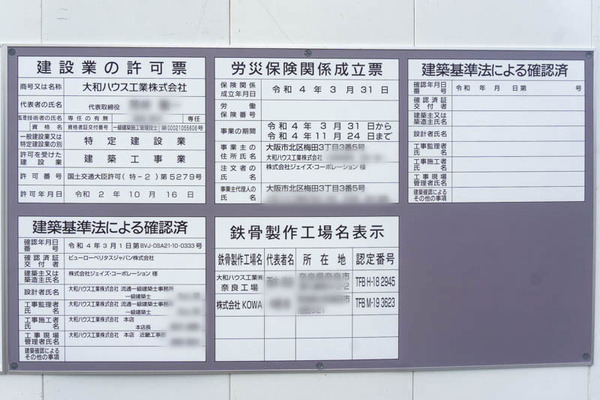 建設業の許可票
商号又は名称 大和ハウス工業株式会社
代表者の氏名 代表取締役
監理技術者の氏名 専任の有無 専任
資格名 資格者証交付番号 一級建築施工管理技士 第00021056606号
一般建設業又は特定建設業の別 特定建設業
許可を受けた建設業 建築工事業
許可番号 国土交通大臣許可(特-2)第5279号
許可年月日 令和2年10月16日
労災保険関係成立票
保険関係成立年月日 令和4年3月31日
労働保険番号
事業の期間 令和4年3月31日から
令和4年11月24日まで
事業主の住所氏名 大阪市北区梅田3丁目3番5号
大和ハウス工業株式会社
注文者の氏名 株式会社ジェイズ・コーポレーション 様
事業主代理人の氏名 大阪市北区梅田3丁目3番5号
建築基準法による確認済
確認年月日番号 令和 年 月 日 第 号
確認済証交付者
建築主又は築造主氏名
設計者氏名
工事監理者氏名
工事施工者氏名
工事現場管理者氏名
建築確認によるその他の事項
建築基準法による確認済
確認年月日番号 令和4年3月1日 第BVJ-OSA21-10-0333号
確認済証交付者 ビューローベリタスジャパン株式会社
建築主又は築造主氏名 株式会社ジェイズ・コーポレーション 様
設計者氏名 大和ハウス工業株式会社 流通一級建築士事務所
一級建築士
工事監理者氏名 大和ハウス工業株式会社 流通一級建築士事務所
一級建築士
工事施工者氏名 大和ハウス工業株式会社 本店
本店長
工事現場管理者氏名 大和ハウス工業株式会社 本店 近畿工事部
建築確認によるその他の事項
鉄骨製作工場名表示
鉄骨製作工場名 代表者名 所在地 認定番号
大和ハウス工業㈱
奈良工場 TFB H-18 2945
株式会社 KOWA TFB M-19 3623